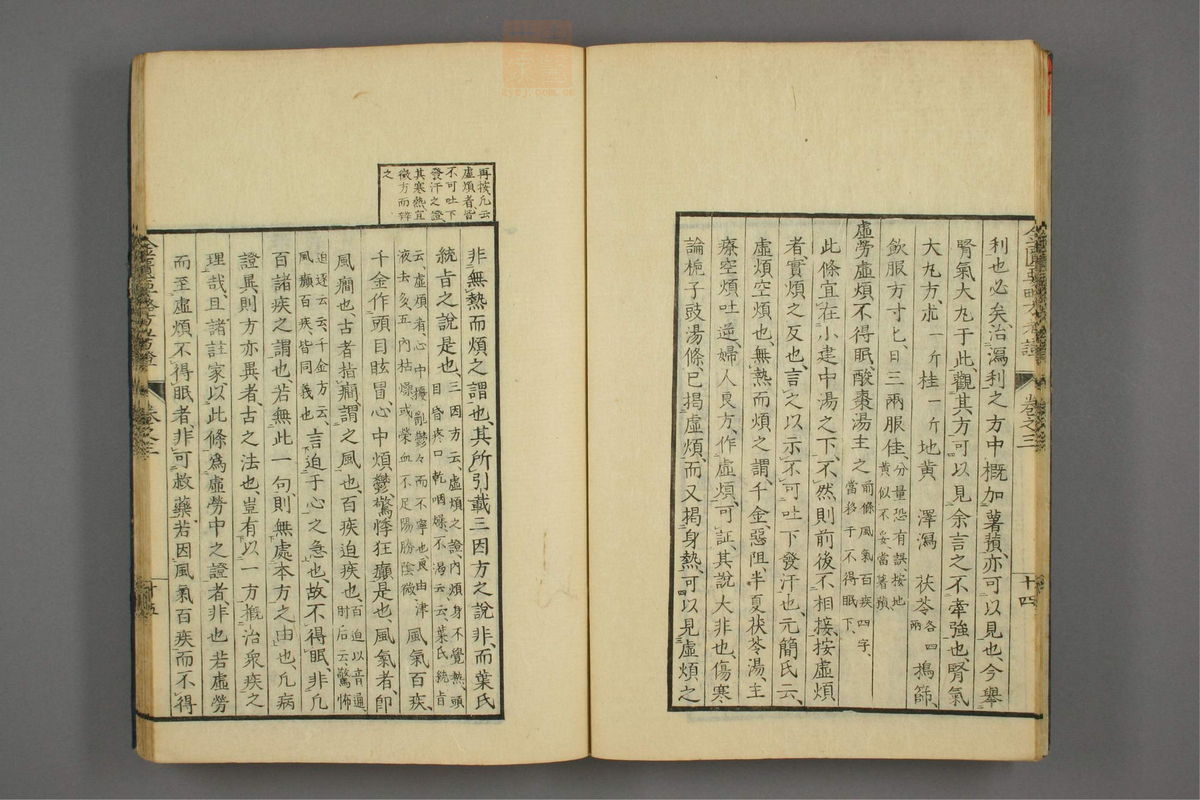 利也必矣、治瀉利之方中概加薯蕷、亦可以見也、今舉
腎氣大丸于此、觀其方可以見余言之不牽強也、腎氣
大丸方、朮一斤桂一斤地黃 澤瀉 茯苓各四兩搗篩、
飲服方寸匕、日三兩服佳、分量恐有誤按地
黃似不妥當薯蕷
虛勞虛煩不得眠、酸棗湯主之前條風氣百疾四字、
當移于不得眠下、
此條宜在小建中湯之下、不然則前後不相接、按虛煩
者、實煩之反也、言之以示不可吐下發汗也、元簡氏云、
虛煩空煩也、無熱而煩之謂、千金惡阻半夏茯苓湯、主
療空煩吐逆、婦人良方、作虛煩、可証、其說大非也、傷寒
論梔子豉湯條、已揭虛煩、而又揭身熱、可以見虛煩之
卷之三
十四
再按凡云
虛煩者皆
不可吐下
發汗之證、
其寒熱宜
徵方而辨
之
非無熱而煩之謂也、其所引載三因方之說非、而葉氏
統旨之說是也、三因方云、虛煩之證、內煩身不覺熱、頭
目昏疼口乾咽燥、不渴云云、葉氏統旨
云虛煩者、心中擾亂鬱々而不寧也、良由津
液去多、五內枯燥或榮血不足陽勝陰微
風氣百疾、
千金作頭目眩冒、心中煩鬱驚悸狂癲是也、風氣者、即
風癇也、古者指癇謂之風也、百疾迫疾也、百迫以音通、
肘后云驚怖
迫逐云云、千金方云、
風癲百疾、皆同義也、
言迫于心之急也、故不得眠、非凡
百諸疾之謂也若無此一句、則無處本方之由也、凡病
證異、則方亦異者、古之法也、豈有以一方概治衆疾之
理哉、且諸註家、以此條爲虛勞中之證者、非也若虛勞
而至虛煩不得眠者、非可救藥、若因風氣百疾而不得
卷之三
十五